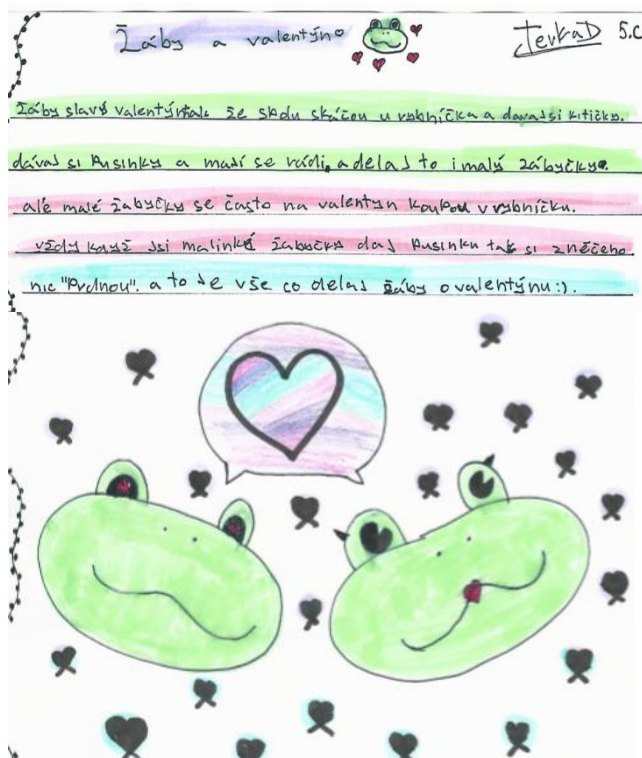 Žáby a valentýn
TerkaD 5.C
Žáby slaví valentýn tak že spolu skáčou u rybníčka a davaj si kitičky.
dávaj si Pusinky a mají se rádi, a delaj to i malý žábyčky.
ale malé žabyčky se často na valentyn koupou v rybníčku.
vždy když jsi malinké žabyčky daj Pusinku tak si z něčeho
nic "Prdnou". a to je vše co delaj žáby o valentýnu:).